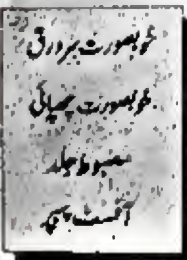 خوبصورت سرورق
خوبصورت چھپائی
مضبوط جلد
آفسٹ پیپر